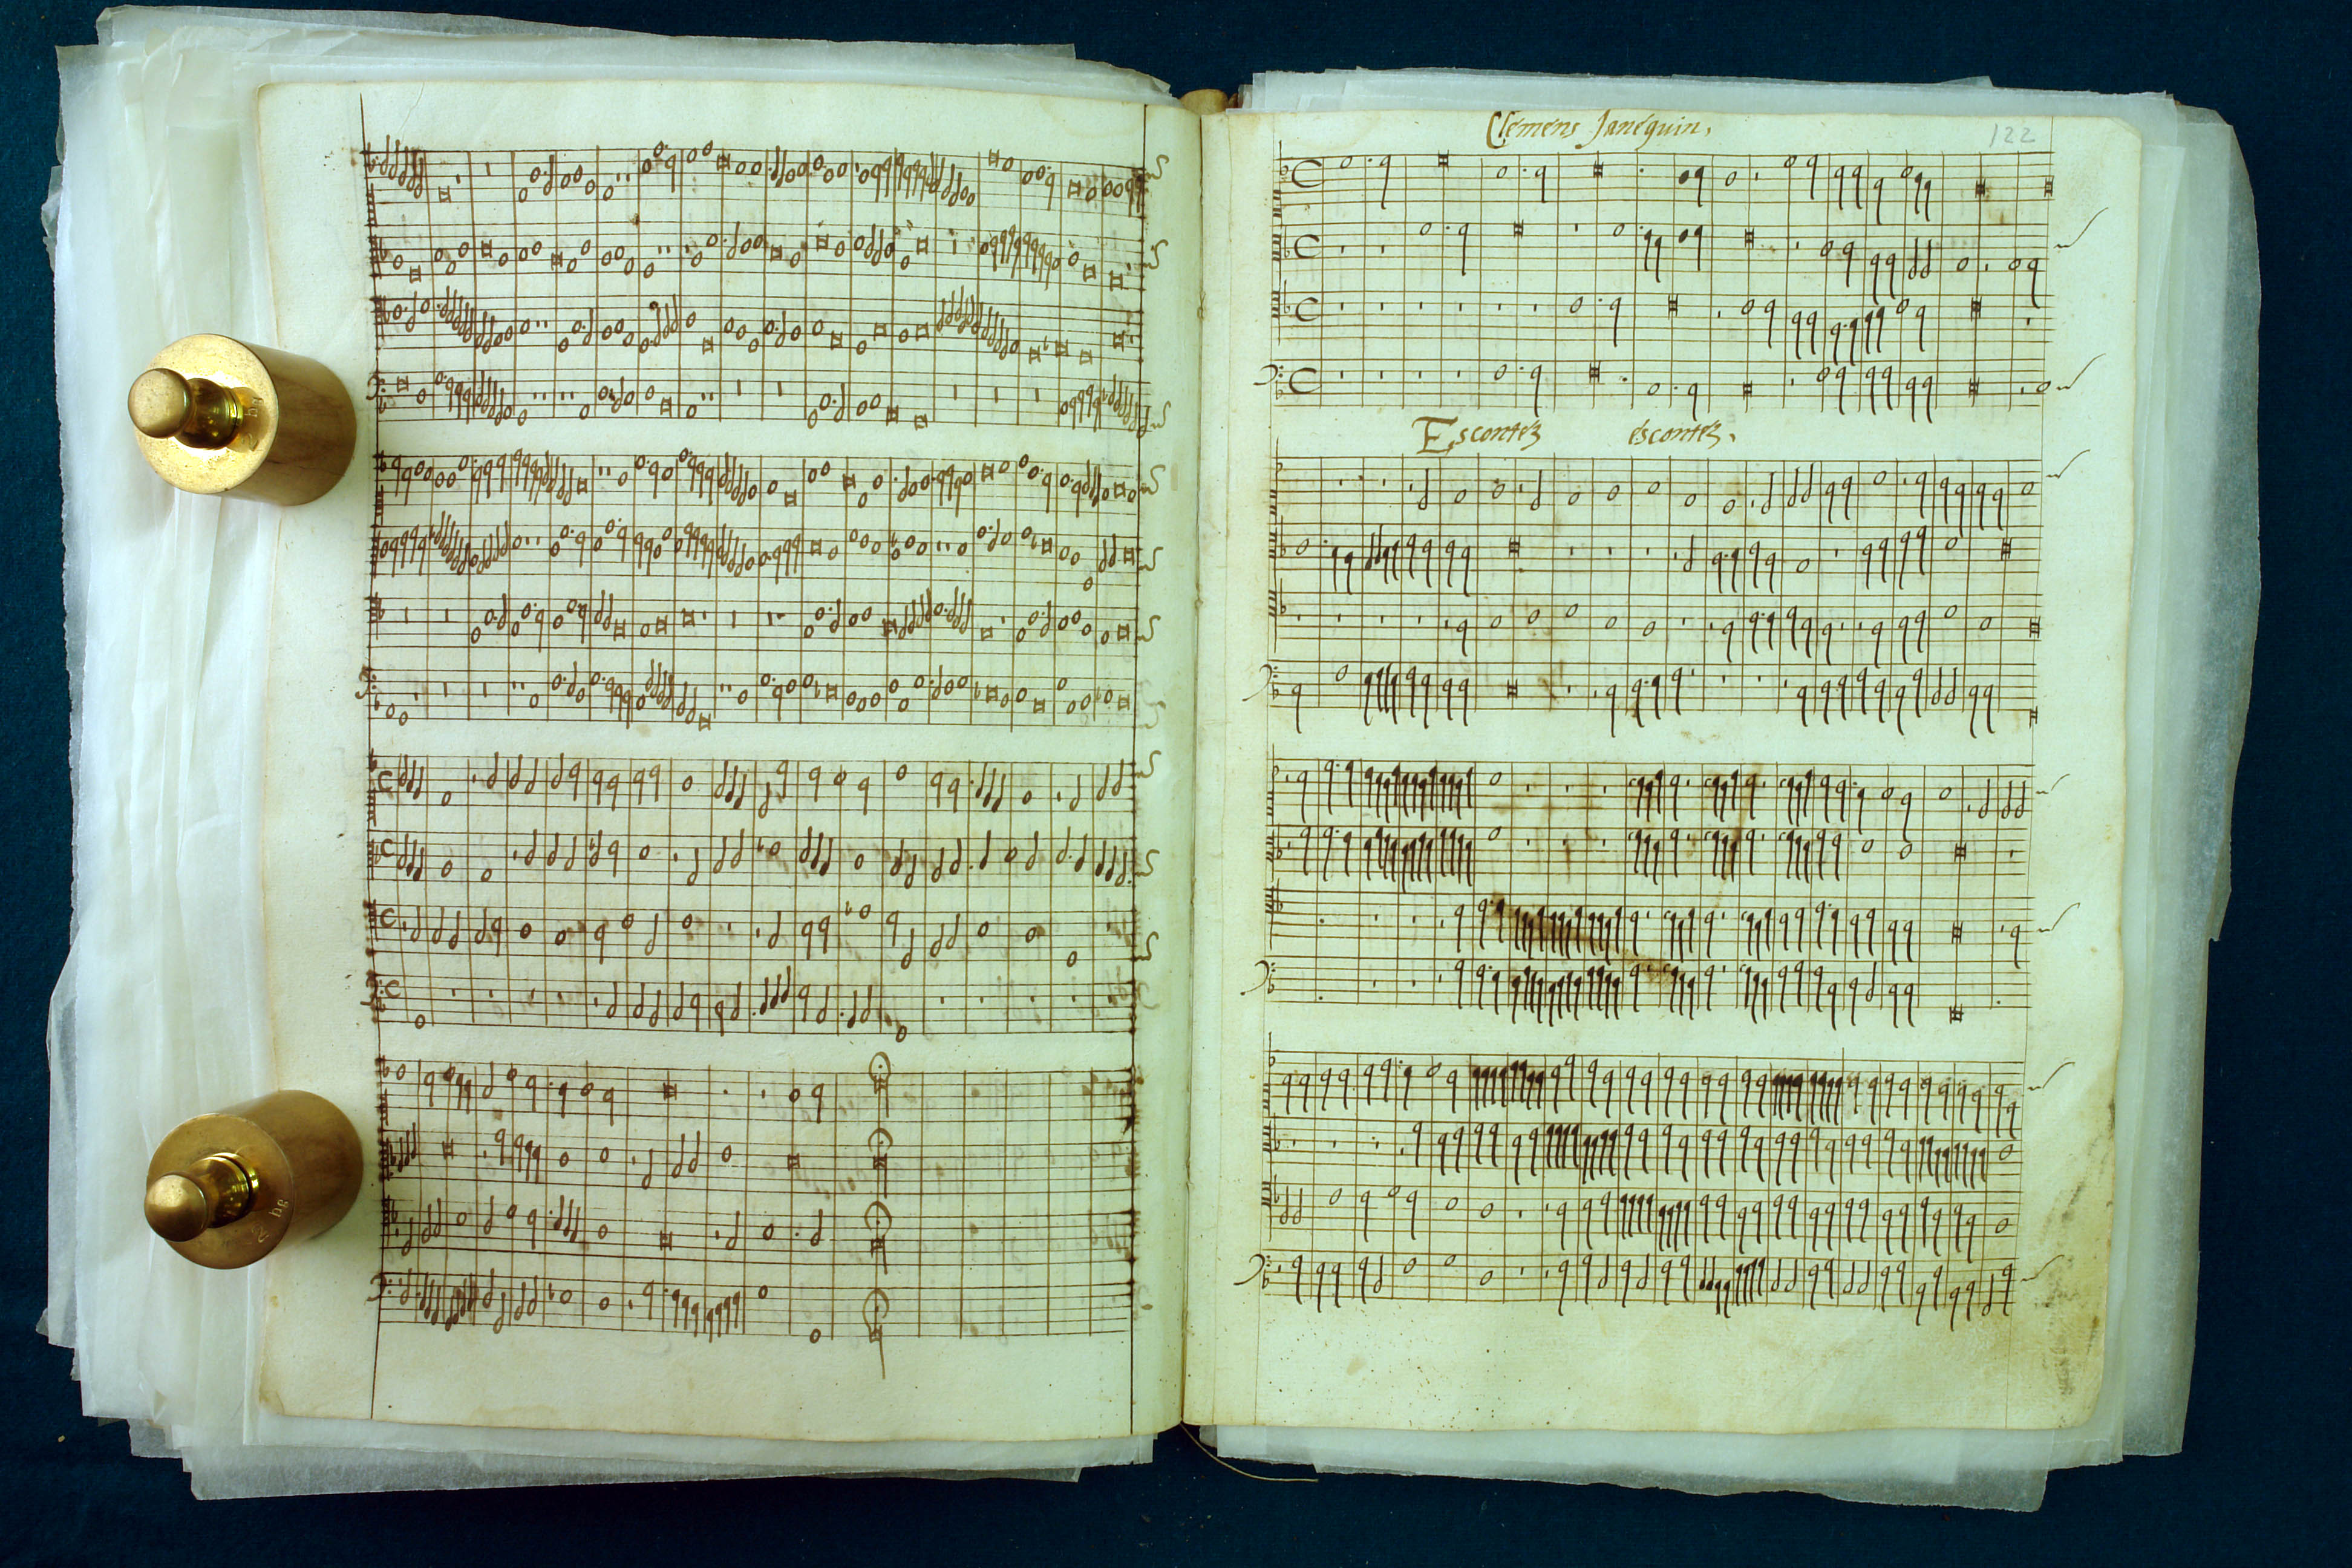 Clemens Janequin,
122
Escoutez escoutez,